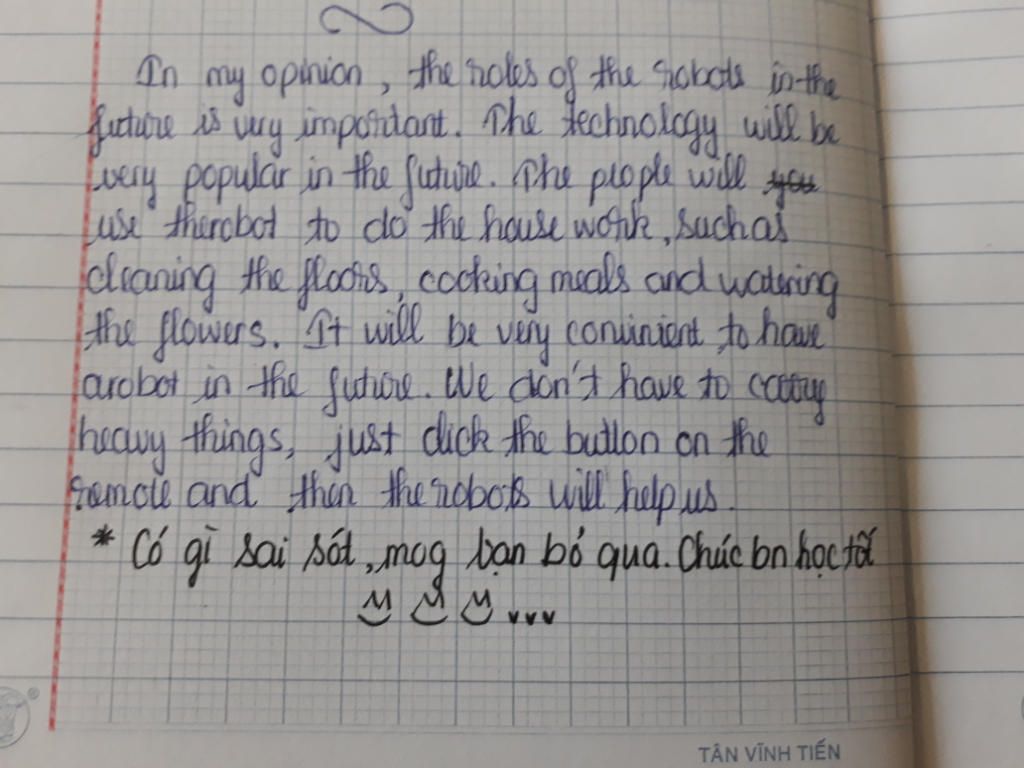 In my opinion, the roles of the robots in the
future is very important. The technology will be
very popular in the future. The people will you
use therobot to do the house work, such as
cleaning the floors, cooking meals and watering
the flowers. It will be very convinient to have
arobot in the future. We don't have to carry
heavy things, just click the button on the
remote and then the robots will help us.
* Có gì sai sót, mog bạn bỏ qua. Chúc bn học tốt
TÂN VĨNH TIẾN